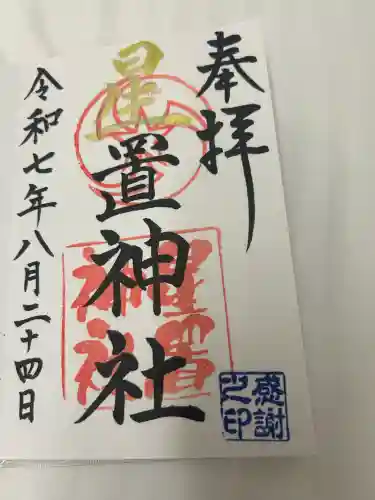 奉拝
星置神社
令和七年八月二十四日
星置
神社
感謝
之印